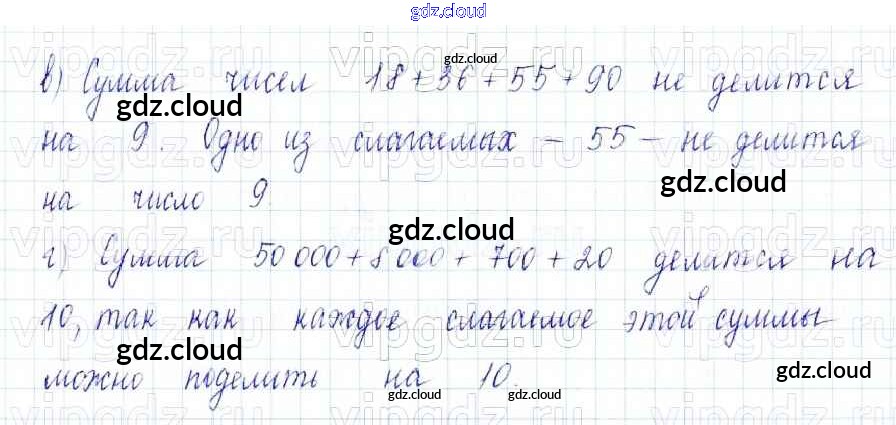 gdz.cloud
gdz.cloud
в) Сумма чисел 18+36+55+90 не делится
gdz.cloud
gdz.cloud
на 9. Одно из слагаемых – 55 – не делится
gdz.cloud
на число 9.
gdz.cloud
г) Сумма 50 000 + 8 000 + 700 + 20 делится на
10, так как каждое слагаемое этой суммы
gdz.cloud
gdz.cloud
можно поделить на 10.
gdz.cloud
gdz.cloud